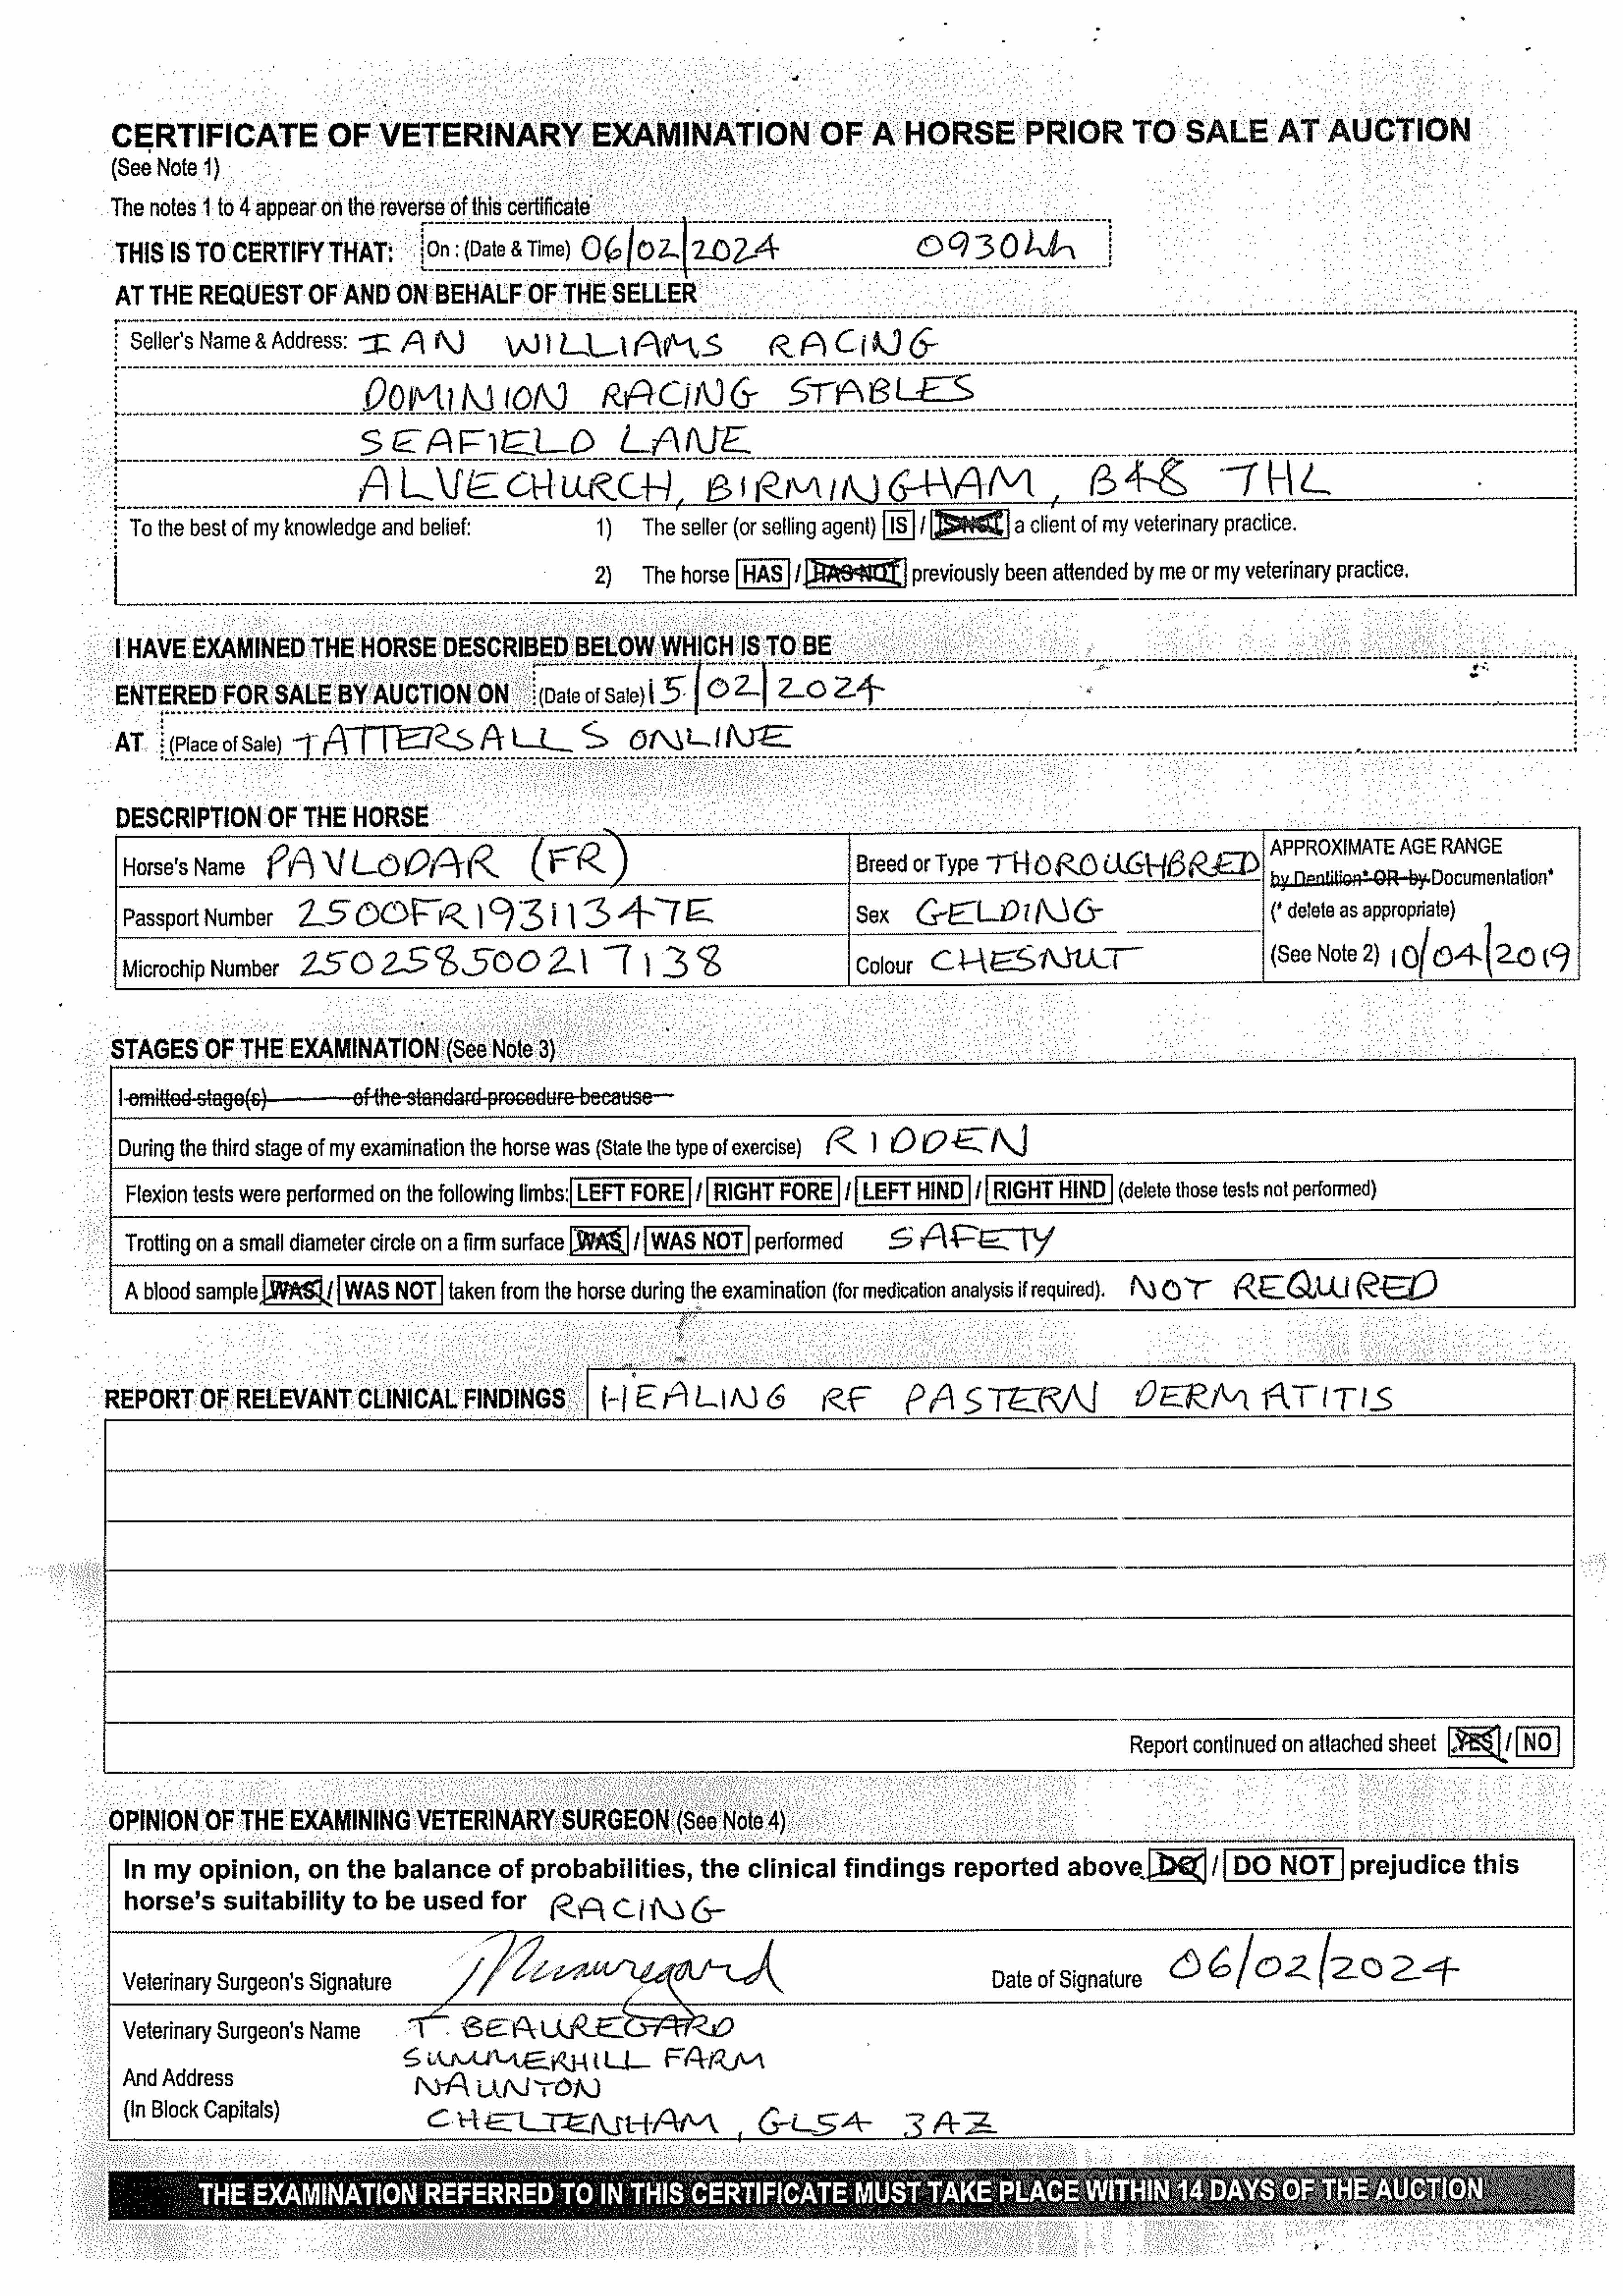 CERTIFICATE OF VETERINARY EXAMINATION OF A HORSE PRIOR TO SALE AT AUCTION
(See Note 1)
The notes 1 to 4 appear on the reverse of this certificate
THIS IS TO CERTIFY THAT: On : (Date & Time) 06/02/2024 0930hh
AT THE REQUEST OF AND ON BEHALF OF THE SELLER
Seller's Name & Address: IAN WILLIAMS RACING
DOMINION RACING STABLES
SEAFIELD LANE
ALVECHURCH, BIRMINGHAM, B48 7HL
To the best of my knowledge and belief: 1) The seller (or selling agent) IS / IS NOT a client of my veterinary practice.
2) The horse HAS / HAS NOT previously been attended by me or my veterinary practice.
I HAVE EXAMINED THE HORSE DESCRIBED BELOW WHICH IS TO BE
ENTERED FOR SALE BY AUCTION ON (Date of Sale) 15/02/2024
AT (Place of Sale) TATTERSALLS ONLINE
DESCRIPTION OF THE HORSE
Horse's Name PAVLODAR (FR) Breed or Type THOROUGHBRED APPROXIMATE AGE RANGE
by Dentition* OR by Documentation*
Passport Number 2500FR19311347E Sex GELDING (* delete as appropriate)
Microchip Number 250258500217138 Colour CHESNUT (See Note 2) 10/04/2019
STAGES OF THE EXAMINATION (See Note 3)
I omitted stage(s) of the standard procedure because
During the third stage of my examination the horse was (State the type of exercise) RIDDEN
Flexion tests were performed on the following limbs: LEFT FORE / RIGHT FORE / LEFT HIND / RIGHT HIND (delete those tests not performed)
Trotting on a small diameter circle on a firm surface WAS / WAS NOT performed SAFETY
A blood sample WAS / WAS NOT taken from the horse during the examination (for medication analysis if required). NOT REQUIRED
REPORT OF RELEVANT CLINICAL FINDINGS HEALING RF PASTERN DERMATITIS
Report continued on attached sheet YES / NO
OPINION OF THE EXAMINING VETERINARY SURGEON (See Note 4)
In my opinion, on the balance of probabilities, the clinical findings reported above DO / DO NOT prejudice this
horse's suitability to be used for RACING
Veterinary Surgeon's Signature TBeauregard Date of Signature 06/02/2024
Veterinary Surgeon's Name T. BEAUREGARD
SUMMERHILL FARM
And Address NAUNTON
(In Block Capitals) CHELTENHAM, GL54 3AZ
THE EXAMINATION REFERRED TO IN THIS CERTIFICATE MUST TAKE PLACE WITHIN 14 DAYS OF THE AUCTION